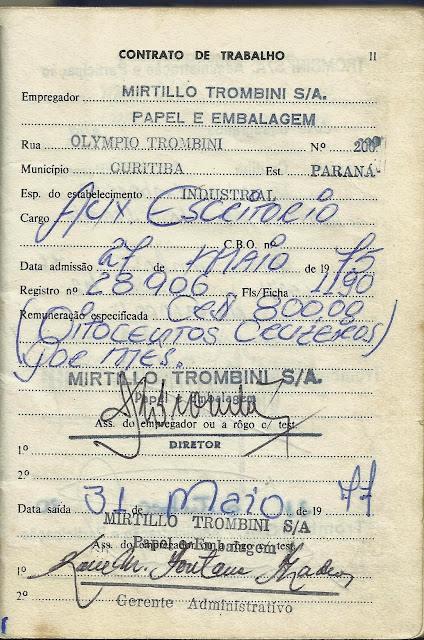 CONTRATO DE TRABALHO 11
Empregador MIRTILLO TROMBINI S/A.
PAPEL E EMBALAGEM
Rua OLYMPIO TROMBINI Nº 200
Município CURITIBA Est. PARANÁ
Esp. do estabelecimento INDUSTRIAL
Cargo Aux Escritorio
C.B.O. nº
Data admissão 27 de MAIO de 1975
Registro nº 28906 Fls/Ficha 1190
Remuneração especificada 800,00
(Oitocentos Cruzeiros)
por mes.
MIRTILLO TROMBINI S/A.
Papel e Embalagem
Ass. do empregador ou a rôgo c/ test.
DIRETOR
1º
2º
Data saída 31 de Maio de 1977
MIRTILLO TROMBINI S/A
Papel e Embalagem
Ass. do empregador ou a rôgo c/ test.
1º
Gerente Administrativo
2º